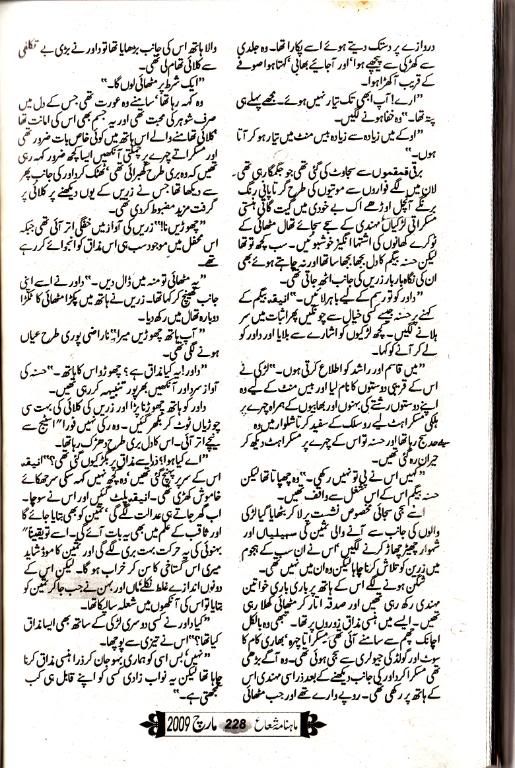 دروازے پر دستک دیتے ہوئے اسے پکارا تھا۔ وہ جلدی
سے کھڑکی سے پیچھے ہوا "اور آجائیے بھائی" کہتا ہوا صوفے
کے قریب آکھڑا ہوا۔
"ارے! آپ ابھی تک تیار نہیں ہوئے۔ مجھے پہلے ہی
پتہ تھا۔" وہ خفا ہونے لگیں۔
"اوکے میں زیادہ سے زیادہ بیس منٹ میں تیار ہو کر آتا
ہوں۔"
برقی قمقموں سے سجاوٹ کی گئی تھی جو جگمگا رہی تھی۔
لان میں لگے فواروں سے موتیوں کی طرح گرتا پانی رنگ
برنگے آنچل اوڑھے اک بے خودی میں گیت گاتی ہنستی
مسکراتی لڑکیاں مہندی کے سجے سجائے تھال مٹھائی کے
ٹوکرے کھانوں کی اشتہا انگیز خوشبوئیں۔ سب کچھ تو تھا
لیکن حسنہ بیگم کا دل بجھا بجھا سا تھا اور نہ چاہتے ہوئے بھی
ان کی نگاہ بار بار زریں کی جانب اٹھ جاتی تھی۔
"داور کو تو رسم کے لیے باہر لائیں۔" انیقہ بیگم کے
کہنے پر حسنہ جیسے کسی خیال سے چونکیں پھر اثبات میں سر
ہلانے لگیں۔ کچھ لڑکیوں کو اشارے سے بلایا اور داور کو
لے کر آنے کو کہا۔
"میں قاسم اور راشد کو اطلاع کرتی ہوں۔" لڑکی نے
اس کے قریبی دوستوں کا نام لیا اور بیس منٹ کے لیے وہ
اپنے دوستوں رشتے کی بہنوں اور بھابیوں کے ہمراہ چہرے پر
ہلکی مسکراہٹ لیے روسلک کے سفید کرتا شلوار میں وہ
سج رہا تھا اور حسنہ تو اس کے چہرے پر مسکراہٹ دیکھ کر
حیران رہ گئی تھیں۔
"کہیں اس نے پی تو نہیں رکھی۔" وہ چھپاتا تھا لیکن
حسنہ بیگم اس کے اس شغل سے واقف تھیں۔
اسے سجی سجائی مخصوص نشست پر لا کر بٹھایا گیا لڑکی
والوں کی جانب سے آنے والی ثمین کی سہیلیاں اور
شہوار چھیڑ چھاڑ کرنے لگیں "اس نے ان سب کے ہجوم
میں زرین کو تلاش کرنا چاہا لیکن وہ ان میں نہیں تھی۔
شگن ہونے لگے اس کے ہاتھ پر باری باری خواتین
مہندی رکھ رہی تھیں اور صدقہ اتار کر مٹھائی کھلا رہی
تھیں۔ ایسے میں ہنسی مذاق زوروں پر تھا۔ جبھی وہ بالکل
اچانک چھم سے سامنے آئی تھی مسکراتا چہرہ بھاری کام کا
سوٹ اور گولڈ کی جیولری سے سجی ہوئی تھی۔ وہ آگے بڑھی
تھی مسکرا کر داور کی جانب دیکھنے کے بعد ذرا سی مہندی اس
کے ہاتھ پر رکھی تھی۔ روپے وارے تھے اور جب مٹھائی
والا ہاتھ اس کی جانب بڑھایا تھا تو داور نے بڑی بے تکلفی
سے کلائی تھام لی تھی۔
"ایک شرط پر مٹھائی لوں گا۔"
وہ کہہ رہا تھا سامنے وہ عورت تھی جس کے دل میں
صرف شوہر کی محبت تھی اور یہ جسم بھی اس کی امانت تھا
کلائی تھامنے والے اس ہاتھ میں کوئی خاص بات ضرور تھی
اور مسکراتے چہرے پر چمکتی آنکھیں ایسا کچھ ضرور کہہ رہی
تھیں کہ وہ بری طرح گھبرائی تھی ٹھٹک کر داور کی جانب پھر
سے دیکھا تھا جس نے زریں کے یوں دیکھنے پر کلائی پر
گرفت مزید مضبوط کر دی تھی۔
"چھوڑیں نا!" زریں کی آواز میں خفگی اتر آئی تھی جبکہ
اس محفل میں موجود سب ہی اس مذاق کو انجوائے کر رہے
تھے۔
"یہ مٹھائی تو منہ میں ڈال دیں۔" داور نے اسے اپنی
جانب کھینچ کر کہا تھا۔ زریں نے ہاتھ میں پکڑا مٹھائی کا ٹکڑا
دوبارہ تھال میں رکھ دیا۔
"آپ ہاتھ چھوڑیں میرا!" ناراضی پوری طرح عیاں
ہونے لگی تھی۔
"داور! یہ کیا مذاق ہے؟ چھوڑو اس کا ہاتھ۔" حسنہ کی
آواز سرد اور آنکھیں بھرپور تنبیہہ کر رہی تھیں۔
داور کو ہاتھ چھوڑنا پڑا اور زریں کی کلائی کی بہت سی
چوڑیاں ٹوٹ کر بکھر گئیں۔ وہ رکی نہیں فوراً اسٹیج سے
نیچے اتر آئی۔ اس کا دل بری طرح دھڑک رہا تھا۔
"اے کیا ہوا؟ ذرا سے مذاق پر بگڑ کیوں گئی تھی؟" انیقہ
اس کے سر پر پہنچ گئی تھیں وہ کچھ نہیں کہہ سکی سر جھکائے
خاموش کھڑی تھی۔ انیقہ پلٹ گئیں اور اس نے سوچا۔
اب گھر جاتے ہی عدالت لگے گی ثمین کو بھی بتایا جائے گا
اور ثاقب کے علم میں بھی یہ بات آئے گی۔ اسے تو یقیناً
بہنوئی کی یہ حرکت بہت بری لگے گی اور ثمین کا موڈ شاید
میری اس گستاخی کا سن کر خراب ہو گا۔ لیکن اس کے
دونوں اندازے غلط نکلے ماں اور بہن نے جب جا کر ثمین کو
بتایا تو اس کی آنکھوں میں شعلہ سا لپکا تھا۔
"کیا داور نے کسی دوسری لڑکی کے ساتھ بھی ایسا مذاق
کیا تھا؟" اس نے تیزی سے پوچھا۔
"نہیں بس اسی کو ہماری بہو جان کر ذرا ہنسی مذاق کرنا
چاہا تھا لیکن یہ نواب زادی کسی کو اپنے قابل ہی کب
سمجھتی ہے۔"
ماہنامہ شعاع 228 مارچ 2009